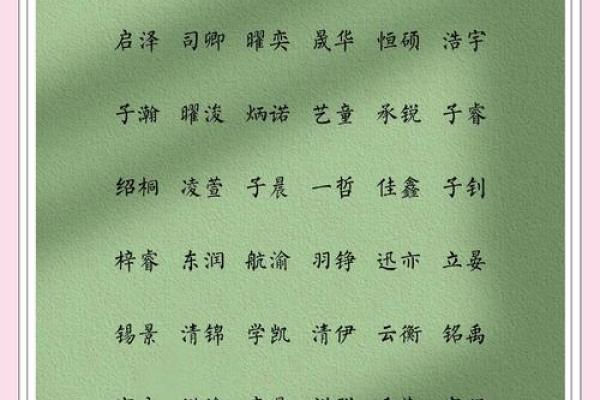 启泽 司卿 曜奕 晟华 恒硕 浩宇
子瀚 曜浚 炳诺 艺童 承锐 子睿
绍桐 凌萱 子晨 一哲 佳鑫 子钊
梓睿 东润 航渝 羽铮 迅亦 立晏
锡景 清锦 学凯 清伊 云衡 铭禹